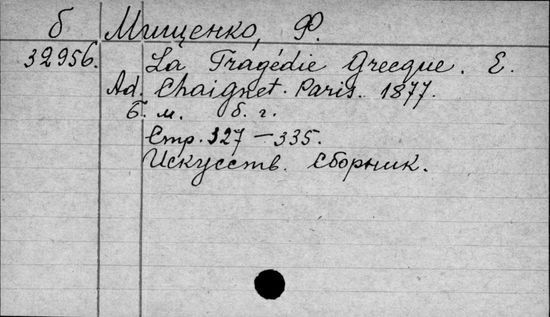 б Мищенко, Ф.
32956. La Tragédie Grecque. E.
Ad. Chaignet. Paris. 1877.
Б. м. б. г.
Стр. 327 – 335.
Искусств. сборник.